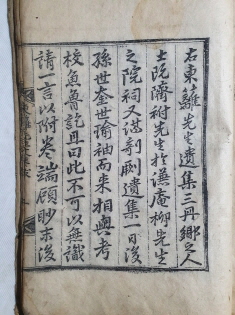 右東籬先生遺集三冊鄕之人
士旣濟祔先生於謙庵柳先生
之院祠又謀剞劂遺集一日後
孫世奎世愉袖而來相與考
校魚魯訖且曰此不可以無識
請一言以附卷端顧眇末後